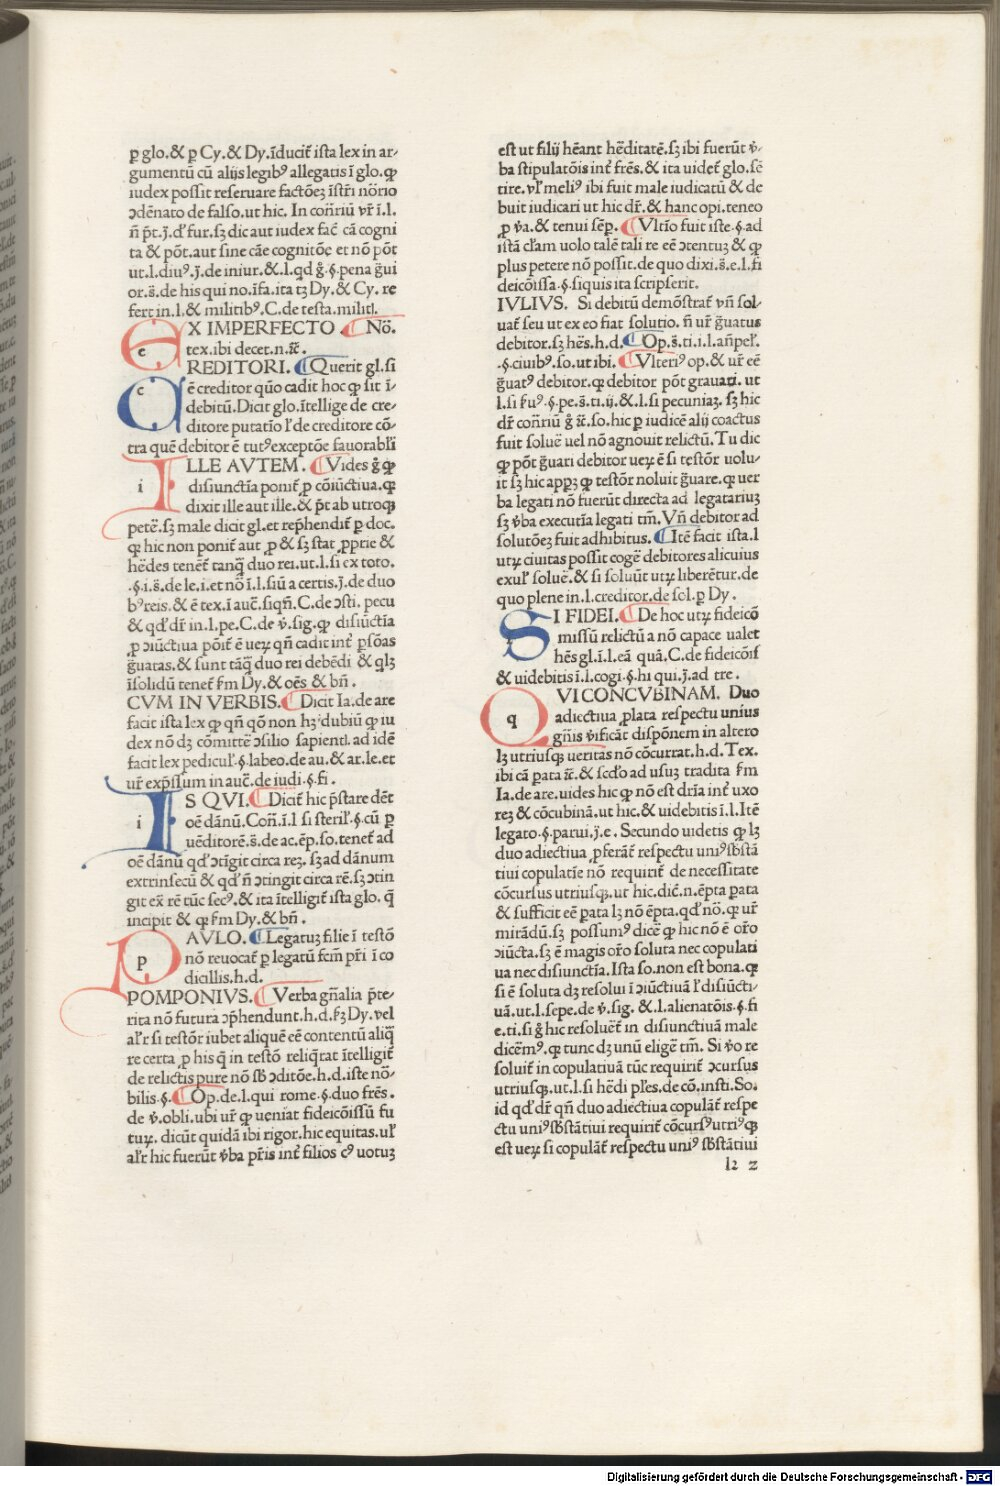 ꝑ glo.& ꝑ Cy.& Dy.īduciť ista lex in ar⸗
gumentū cū alijs legibꝰ allegatis ī glo.ꝙ
iudex possit reseruare factōeʒ īstrī nōrio
ↄdēnato de falso.ut hic. In cōn̄riū vr̄ ī.l.
ut.l.diuꝰ.j.de iniur.&.l.qd ḡ.§.pena ḡui
or.s̄.de his qui no.īfa.ita tʒ Dy.& Cy. re
fert in.l.& militibꝰ.C.de testa.militl.
EX IMPERFECTO . Nō.
tex.ibi decet.n.īc̄.
CREDITORI. Querit gl.si
ē creditor quō cadit hoc ꝙ sit ī⸗
debitū.Dicit glo.ītellige de cre⸗
ditore putatio l'de creditore cō⸗
tra quē debitor ē tutꝰexceptōe fauorabl'i
ILLE AVTEM. Vides ḡ ꝙ
disiunctīa poniť ꝑ cōiūctiua.ꝙ
dixit ille aut ille.& p̄t ab utroqʒ
petē.sʒ male dicit gl.et rep̄hendiť ꝑ doc.
ꝙ hic non poniť aut ꝓ & sʒ stat ꝓprie &
hēdes teneť tanq̄ʒ duo rei.ut.l.si ex toto.
.§.i.s̄.de le.i.et nō ī.l.siū a certis.j.de duo
bꝰreis.& ē tex.ī auc̄.siqn̄.C.de ↄsti. pecu
& qd' dr̄ in.l.pe.C.de v̄.sig.ꝙ disiūctīa
ꝓ ↄiūctiua pōiť ē ueꝝ qn̄ cadit inť ꝑsōas
ḡuatas.& sunt tāq̄ʒ duo rei debēdi & qlʒ
īsolidū teneť fm Dy.& oēs & bn̄.
CVM IN VERBIS. Dicit Ia.de are
facit ista lex ꝙ qn̄ qō non hʒ dubiū ꝙ iu
dex nō dʒ cōmittē ↄsilio sapientl.ad idē
facit lex pedicul'.§.labeo.de au.& ar.le.et
ur̄ exp̄ssum in auc̄.de iudi.§.fi.
IS QVI. Diciť hic p̄stare dēt
oē dānū.Con̄.ī.l si steril'.§.cū ꝑ
uēditorē.s̄.de ac.ēp.so.teneť ad
oē dānū qd' ↄtīgit circa reʒ.sʒ ad dānum
extrinsecū & qd' n̄ ↄtingit circa rē.sʒ ↄtin
git ex̄ rē tūc secꝰ.& ita ītelligiť ista glo. q̄
incipit & ꝙ fm Dy.& bn̄.
PAVLO. Legatuʒ filie ī testō
nō reuocať ꝑ legatū fcm̄ pr̄i ī co
dicillis.h.d.
POMPONIVS. Verba gn̄alia p̄te⸗
rita nō futura ↄp̄hendunt.h.d.sʒ Dy.vel
al'r si testōr iubet aliquē eē contentū aliq̄
re certa ꝓ his q̄ in testō reliq̄rat ītelligiť
de relictis pure nō sb̄ ↄditōe.h.d.iste nō⸗
bilis.§. Op.de.l.qui rome.§.duo fres̄.
de v̄.obli.ubi ur̄ ꝙ ueniat fideicōissū fu
tuꝝ. dicūt quidā ibi rigor.hic equitas.ul'
al'r hic fuerūt v̄ba pr̄is inť filios cꝰ uotuʒ
est ut filij hēant hēditatē.sʒ ibi fuerūt v̄⸗
ba stipulatōis inť frēs.& ita uideť glo.sē
tire.vl' meliꝰ ibi fuit male iudicatū & de
buit iudicari ut hic dr̄.& hanc opi.teneo
ꝓ v̄a.& tenui sēꝑ. Vltrīo fuit iste.§.ad
istā cl'am uolo talē tali re eē ↄtentuʒ & ꝙ
plus petere nō possit.de quo dixi.s̄.e.l.fi
deicōissa.§.siquis ita scripserit.
IVLIVS. Si debitū demōstrať vn̄ sol⸗
uať seu ut ex eo fiat solutio. n̄ ur̄ ḡuatus
debitor.sʒ hēs.h.d. Op.s̄.ti.i.l.an̄pel'.
.§.ciuibꝰ.so.ut ibi. Vlteriꝰ op.& ur̄ eē
ḡuatꝰ debitor.ꝙ debitor pōt grauari. ut
l.si fuꝰ.§.pe.s̄.ti.ij.& l.si pecuniaʒ. sʒ hic
dr̄ con̄riū ḡ īc̄.so.hic ꝑ iudicē alij coactus
fuit soluē uel nō agnouit relictū. Tu dic
ꝙ pōt ḡuari debitor ueꝝ ē si testōr uolu⸗
it sʒ hic appʒ ꝙ testōr noluit ḡuare.ꝙ uer
ba legati nō fuerūt directa ad legatariuʒ
sʒ v̄ba executīa legati tm̄. Vn̄ debitor ad
solutōeʒ fuit adhibitus. Itē facit ista.l
utꝝ ciuitas possit cogē debitores alicuius
exul' soluē.& si soluūt utꝝ liberētur.de
quo plene in.l.creditor.de sol.ꝑ Dy .
SI FIDEI. De hoc utꝝ fideicō
missū relictū a nō capace ualet
hēs gl.ī.l.eā quā.C.de fideicōis
& uidebitis ī.l.cogi.§.hi qui.j.ad tre .
QVI CONCVBINAM. Duo
adiectiua ꝓlata respectu unius
gn̄is v̄ificāt dispōnem in altero
lʒ utriusqʒ ueritas nō cōcurrat.h.d. Tex.
ibi cā ꝑata īc̄.& scd'o ad usuʒ tradita fm
Ia.de are.uides hic ꝙ nō est drīa inť uxo
reʒ & cōcubinā.ut hic.& uidebitis ī.l.Itē
legato.§.parui.j.e . Secundo uidetis ꝙ lʒ
duo adiectiua ꝓferāť respectu uniꝰsb̄stā
tiui copulatīe nō requiriť de necessitate
cōcursus utriusqʒ.ut hic.dic̄.n.ēpta ꝑata
& sufficit eē ꝑata lʒ nō ēpta.qd' nō.ꝙ ur̄
mirādū.sʒ possumꝰ dicē ꝙ hic nō ē or̄o
ↄiūcta.sʒ ē magis or̄o soluta nec copulati
ua nec disiunctīa. Ista so.non est bona.ꝙ
si ē soluta dʒ resolui ī ↄiūctiuā l'disiūcti⸗
uā.ut.l.sepe.de v̄.sig. &.l.alienatōis.§.fi
e.ti.si ḡ hic resoluēť in disiunctiuā male
dicēmꝰ.ꝙ tunc dʒ unū eligē tm̄. Si v̄o re
soluiť in copulatiuā tūc requiriť ↄcursus
utriusqʒ.ut.l.si hēdi pl'es.de cō.insti.So.
id qd' dr̄ qn̄ duo adiectiua copulāť respe
ctu uniꝰsb̄stātiui requiriť cōcursꝰutriꝰqʒ
est ueꝝ si copulāť respectu uniꝰ sb̄stātiui
l2 2
Digitalisierung gefördert durch die Deutsche Forschungsgemeinschaft - DFG